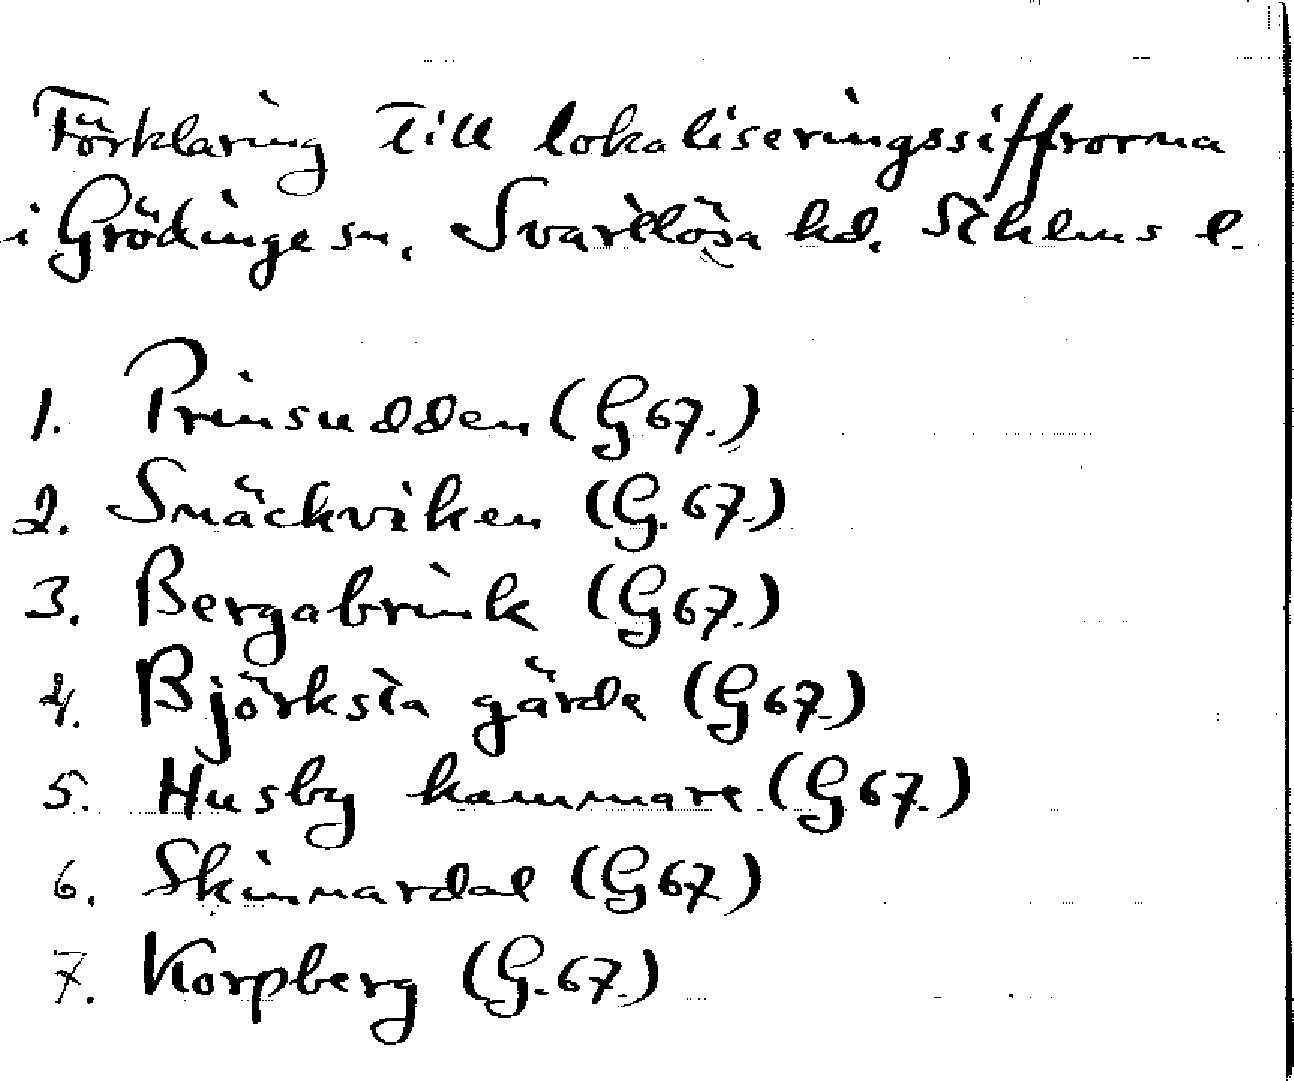 Förklaring till lokaliseringssiffrorna
i Grödinge sn, Svartlösa hd. Sthlms l.
1. Prinsudden (G67.)
2. Snäckviken (G.67.)
3. Bergabrink (G67.)
4. Björksta gärde (G67.)
5. Husby kammare (G67.)
6. Skinnardal (G67)
7. Korpberg (G.67.)